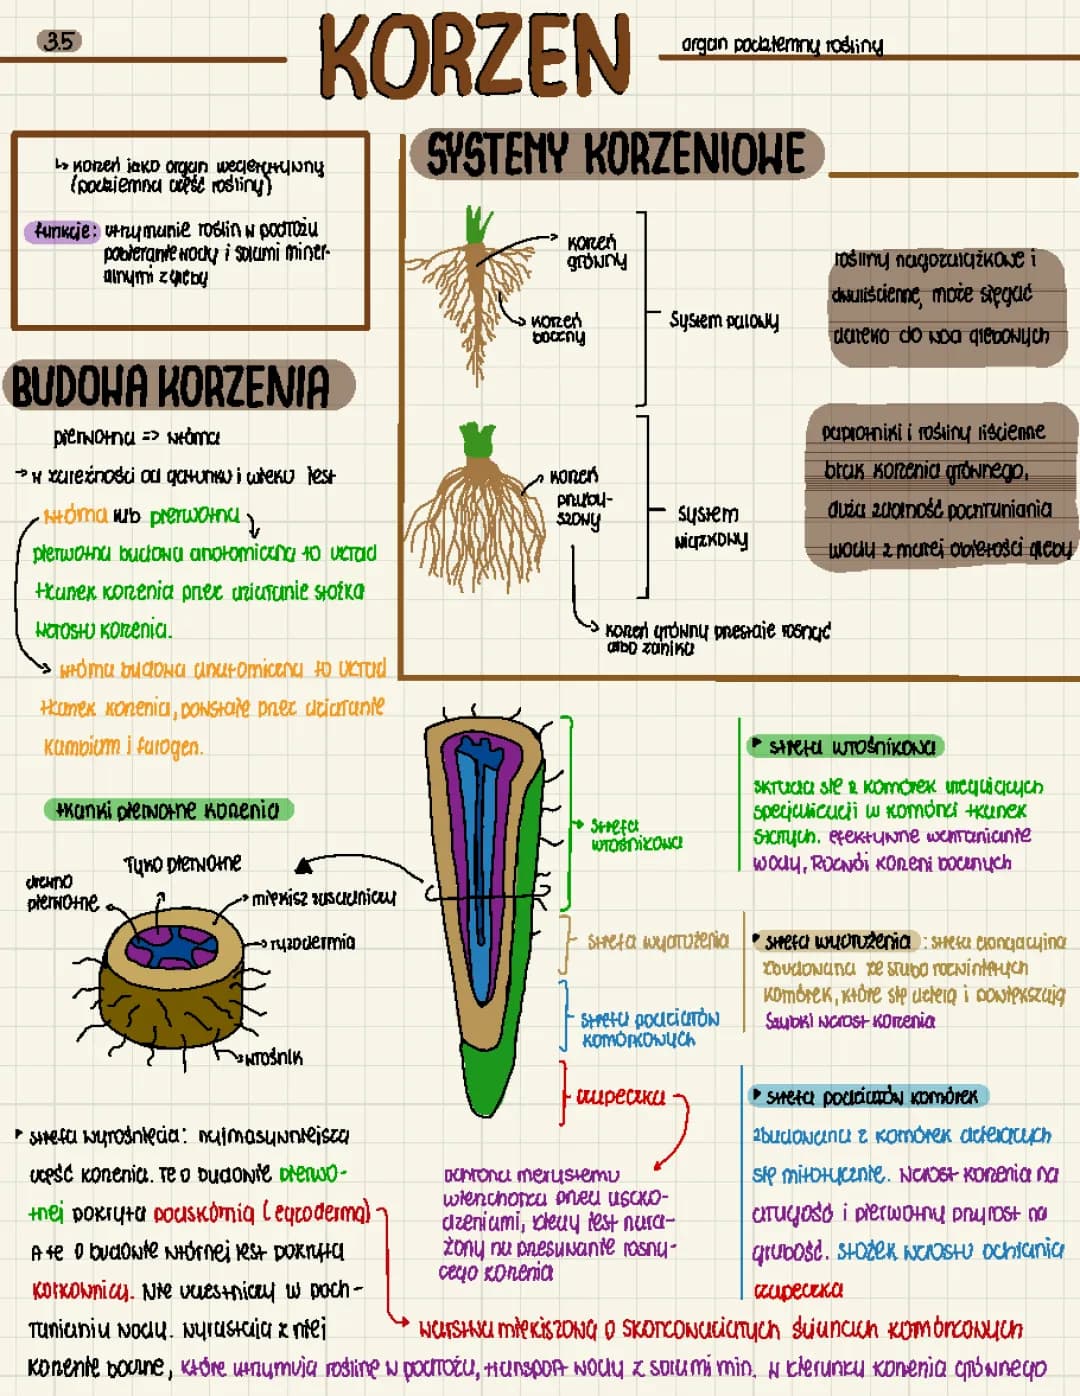 3.5
KORZEN
organ podziemny rośliny
↳ korzeń jako organ wegetatywny
(podziemna część rośliny)
funkcje: utrzymanie roślin w podłożu
pobieranie wody i solami miner-
alnymi z gleby
SYSTEMY KORZENIOWE
korzeń
główny
korzeń
boczny
System palowy
rośliny nagozalążkowe i
dwuliścienne, może sięgać
daleko do wód glebowych
korzeń
przyby-
szowy
System
wiązkowy
paprotniki i rośliny liścienne
brak korzenia głównego,
duża zdolność pochłaniania
wody z małej objętości gleby
korzeń główny przestaje rosnąć
albo zanika
BUDOWA KORZENIA
pierwotna => wtórna
→ w zależności od gatunku i wieku jest
wtórna lub pierwotna
pierwotna budowa anatomiczna to układ
tkanek korzenia przez działanie stożka
wzrostu korzenia.
wtórna budowa anatomiczna to układ
tkanek korzenia, powstałe przez działanie
kambium i fellogen.
tkanki pierwotne korzenia
łyko pierwotne
drewno
pierwotne
miękisz zasadniczy
ryzodermia
włośnik
strefa
włośnikowa
strefa wydłużenia
strefa podziałów
komórkowych
czapeczka
ochrona merystemu
wierzchołka przed uszko-
dzeniami, kiedy jest nara-
żony na przesuwanie rosną-
cego korzenia
▸ strefa włośnikowa
składa się z komórek ulegających
specjalizacji w komórki tkanek
stałych. efektywne wchłanianie
wody, Rozwój korzeni bocznych
▸ strefa wydłużenia : strefa elongacyjna
zbudowana ze słabo rozwiniętych
komórek, które się dzielą i powiększają
Szybki wzrost korzenia
▸ strefa podziałów komórek
zbudowana z komórek dzielących
się mitotycznie. Wzrost korzenia na
długość i pierwotny przyrost na
grubość. stożek wzrostu ochrania
czapeczka
▸ strefa wyrośnięcia: najmasywniejsza
część korzenia. Te o budowie pierwo-
tnej pokryta podskórnią (egzoderma)
A te o budowie wtórnej jest pokryta
korkownicą. Nie uczestniczy w poch-
łanianiu wody. wyrastają z niej
warstwa miękiszowa o skorkowaciałych ścianach komórkowych
korzenie boczne, które utrzymują roślinę w podłożu, transport wody z solami min. w kierunku korzenia głównego